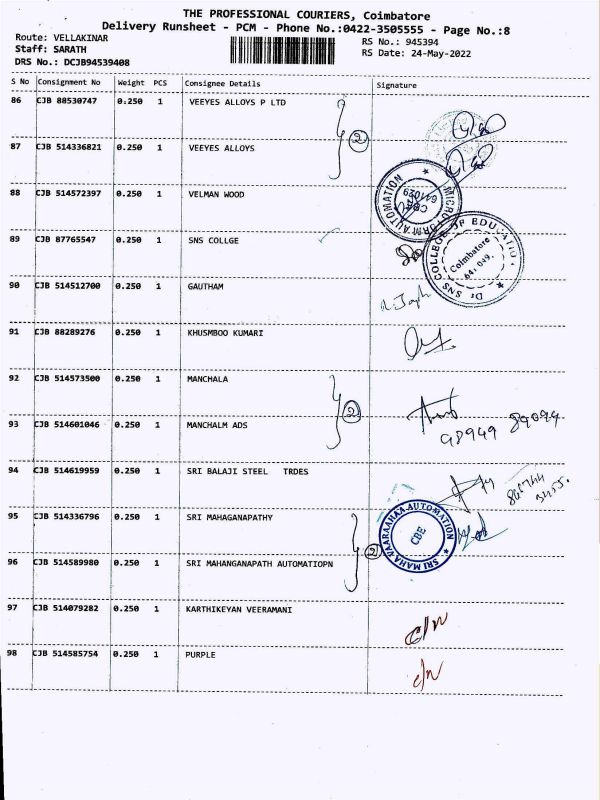 THE PROFESSIONAL COURIERS, Coimbatore
Delivery Runsheet - PCM - Phone No.:0422-3505555 - Page No.:8
Route: VELLAKINAR RS No.: 945394
Staff: SARATH RS Date: 24-May-2022
DRS No.: DCJB94539408
S No Consignment No Weight PCS Consignee Details Signature
86 CJB 88530747 0.250 1 VEEYES ALLOYS P LTD
2
87 CJB 514336821 0.250 1 VEEYES ALLOYS
88 CJB 514572397 0.250 1 VELMAN WOOD
MICROFORM AUTOMATION
CBE
641029
89 CJB 87765547 0.250 1 SNS COLLGE
Dr SNS COLLEGE OF EDUCATION
Coimbatore
641 049.
90 CJB 514512700 0.250 1 GAUTHAM
91 CJB 88289276 0.250 1 KHUSMBOO KUMARI
92 CJB 514573500 0.250 1 MANCHALA
2
93 CJB 514601046 0.250 1 MANCHALM ADS
98949 89094
94 CJB 514619959 0.250 1 SRI BALAJI STEEL TRDES
95 CJB 514336796 0.250 1 SRI MAHAGANAPATHY
SRI MAHA VAARAAHAA AUTOMATION
CBE
2
96 CJB 514589980 0.250 1 SRI MAHANGANAPATH AUTOMATIOPN
97 CJB 514079282 0.250 1 KARTHIKEYAN VEERAMANI
c/n
98 CJB 514585754 0.250 1 PURPLE
c/n